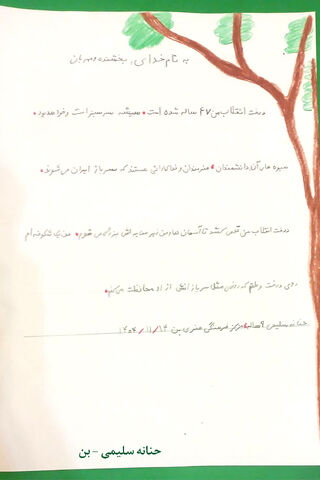 به نام خدای، بخشنده و مهربان
درخت انقلاب من ۴۷ ساله شده است • همیشه سرسبز است و خواهد بود •
میوه های آن دانشمندان • هنرمندان و فداکارانی هستند که سرباز ایران می شوند •
درخت انقلاب من قدمی کشد تا آسمان ها و من زیر سایه اش بزرگ می شوم • من یک شکوفه ام
روی درخت وطنم که روزی مثل سرباز انقلاب از او محافظت می کنم •
حنانه سلیمی ۹ ساله • مرکز فرهنگی هنری بن ۱۴۰۴/۱۱/۱۴
حنانه سلیمی - بن